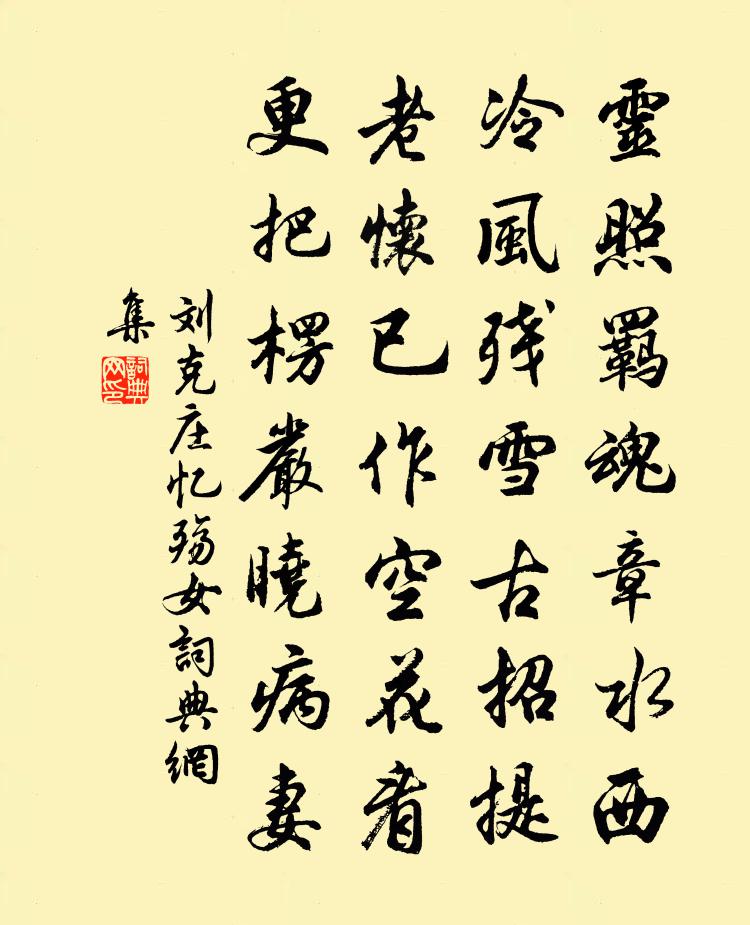 靈照羇魂章水西
冷風残雪古招提
老懷已作空花看
更把楞嚴曉病妻
刘克庄忆殇女詞典網
集
詞典
网印